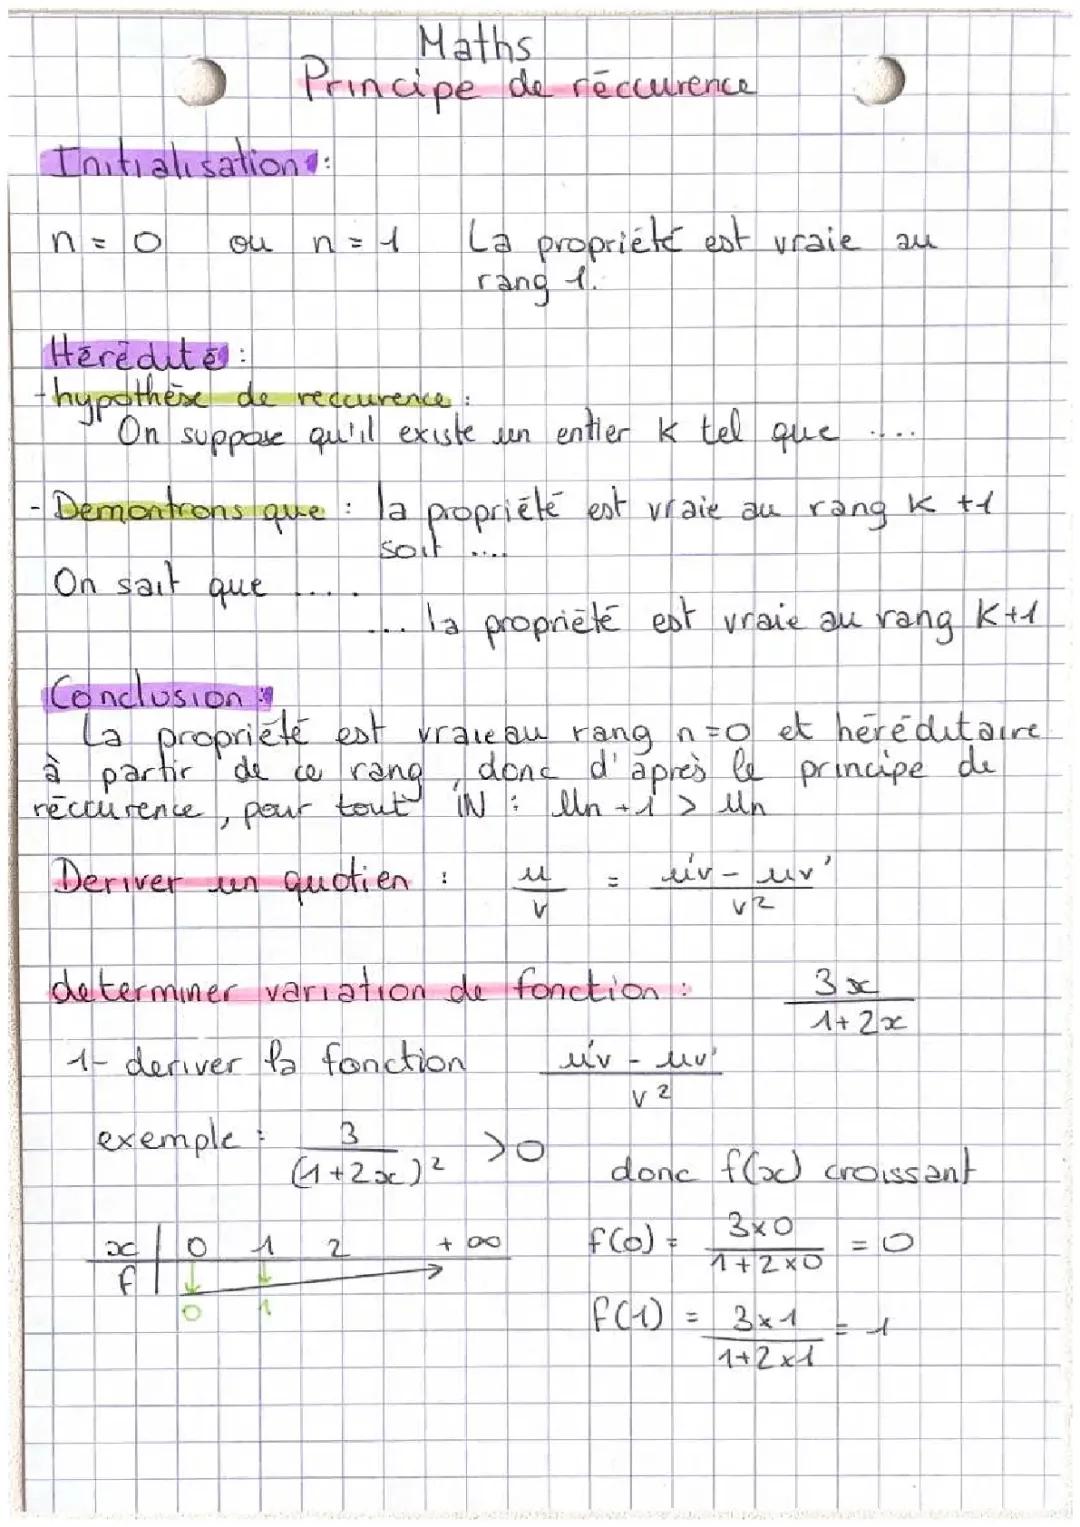 Maths
Principe de réccurence
Initialisation :
n = 0 ou n = 1 La propriété est vraie au
rang 1.
Hérédité :
- hypothèse de reccurence :
On suppose qu'il existe un entier k tel que ....
- Demontrons que : la propriété est vraie au rang k +1
soit ....
On sait que ....
... la propriété est vraie au rang K+1
Conclusion :
La propriété est vraie au rang n=0 et héréditaire
à partir de ce rang, donc d'après le principe de
réccurence, pour tout IN : Un+1 > Un
Deriver un quotien : u/v = (u'v - uv')/v²
determiner variation de fonction : 3x/(1+2x)
1- deriver la fonction (u'v - uv')/v²
exemple : 3/(1+2x)² >0 donc f(x) croissant
x 0 1 2 +∞ f(0) = (3×0)/(1+2×0) = 0
f
0 1 f(1) = (3×1)/(1+2×1) = 1